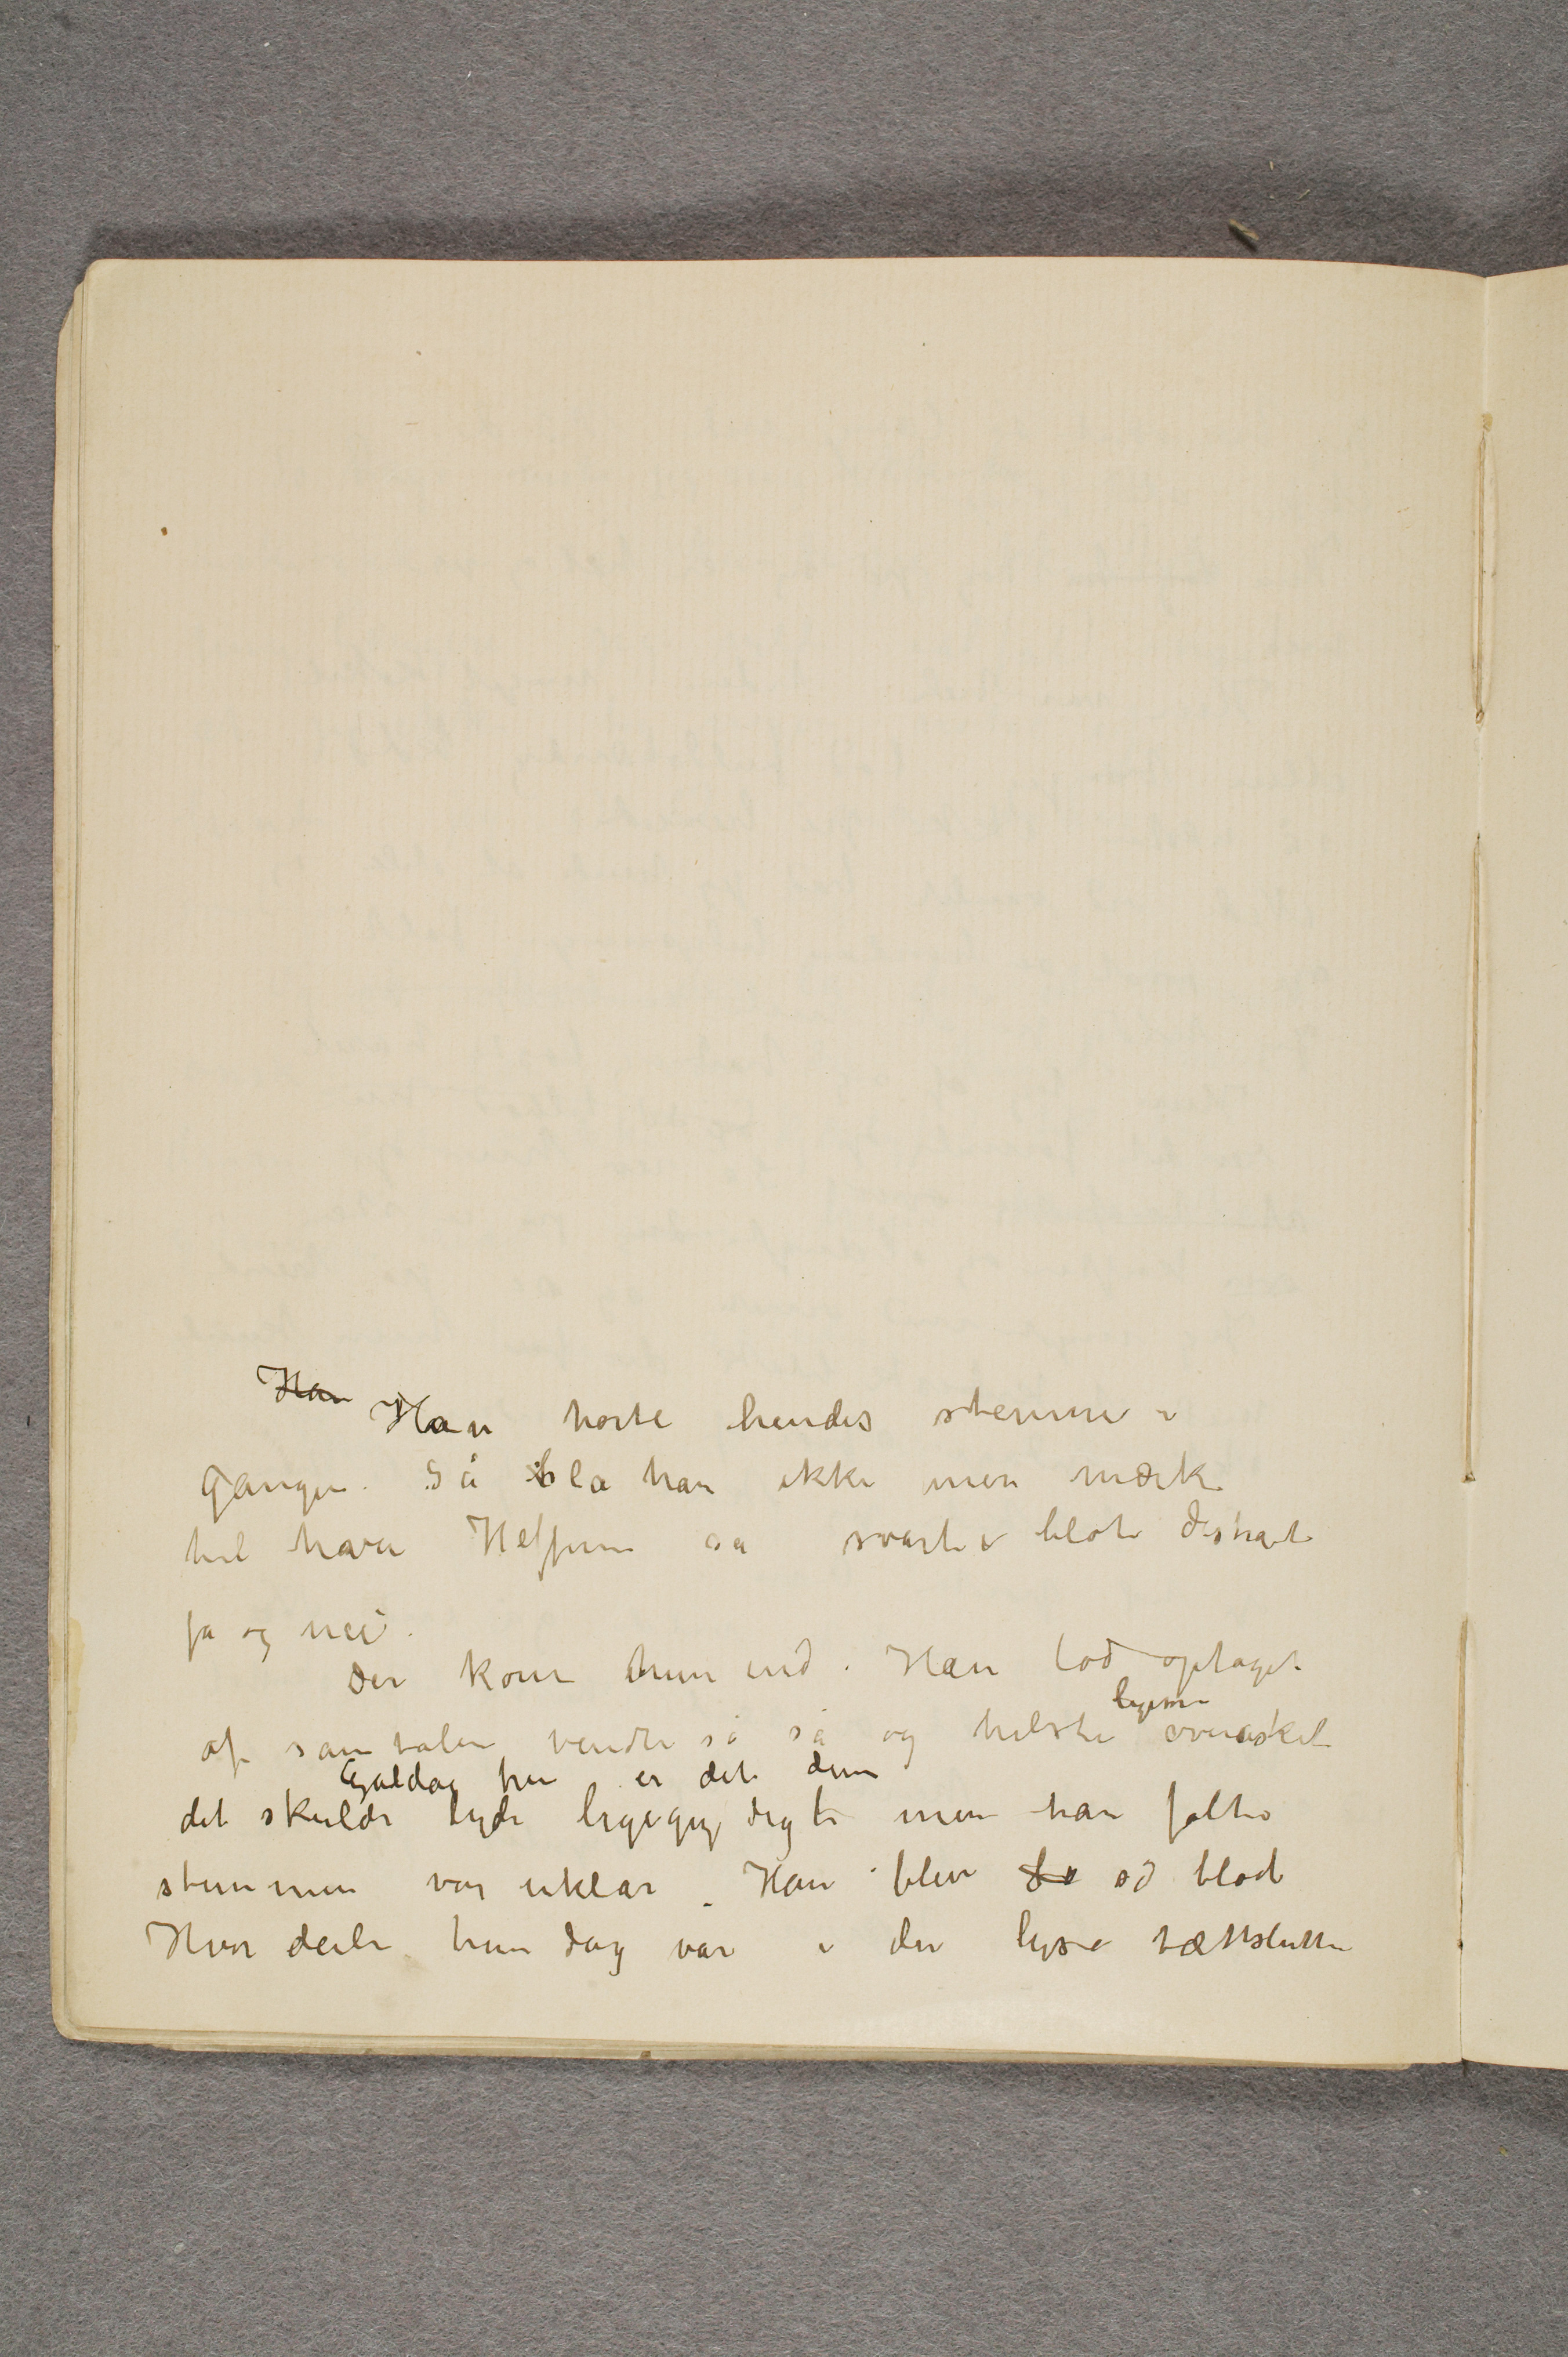 Han Han hørte hendes stemme i
gangen. Så bla han ikke mer mærke
til hva Helfern sa svarte blot distrait
ja og nei.
Der kom hun ind. Han lod optaget
ligesom
af samtalen vendte så så og hilste overasket
Goddag frue er det dem
det skulde lyde ligegyldigt men han følte
stemmen var uklar. Han blev så blød
Hvor deilig hun dag var i den lyse tætsluttne